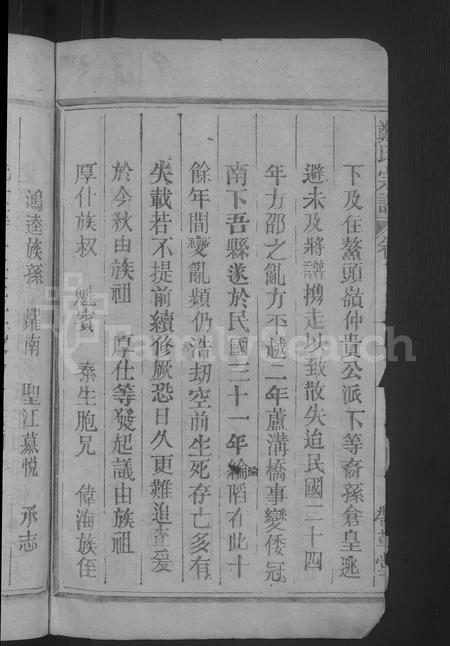 鄭氏宗譜
下及住鰲頭嶺仲貴公派下等裔孫倉皇逃
避未及將譜携走以致散失迨民國二十四
年方邵之亂方平越二年蘆溝橋事變倭冠
南下吾縣遂於民國三十一年淪陷在此十
餘年間變亂頻仍浩刧空前生死存亡多有
失載若不提前續修厥恐日久更難追查爰
於今秋由族祖 厚仕等發起議由族祖
厚什族叔 魁賓 泰生胞兄 偉海族侄
鴻逵族孫 耀南 聖江慕悅 承志
FamilySearch